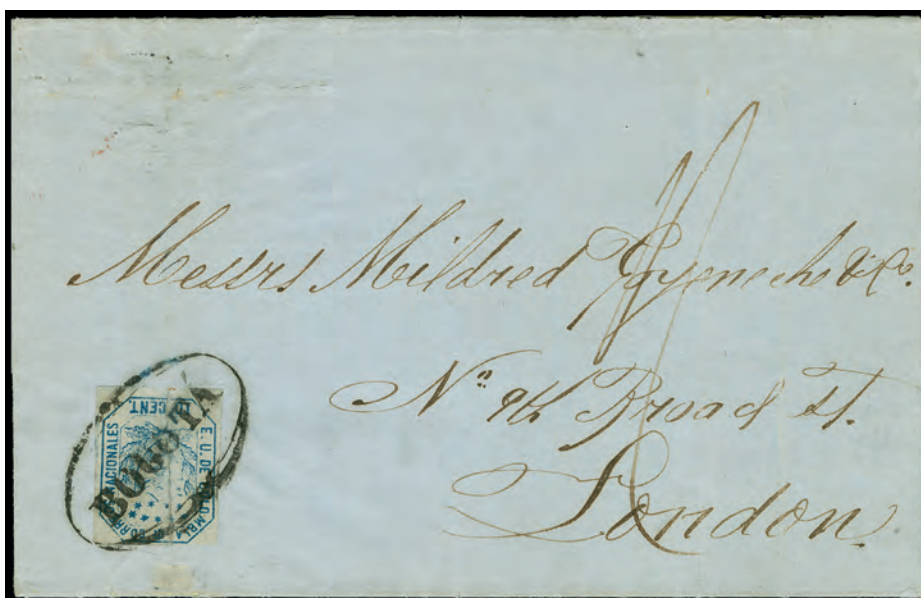 Messrs Mildred Goyeneche & Co.
No 9th Broad St.
London
BOGOTA
E. U. DE COLOMBIA
CORREOS NACIONALES
10 CENT.